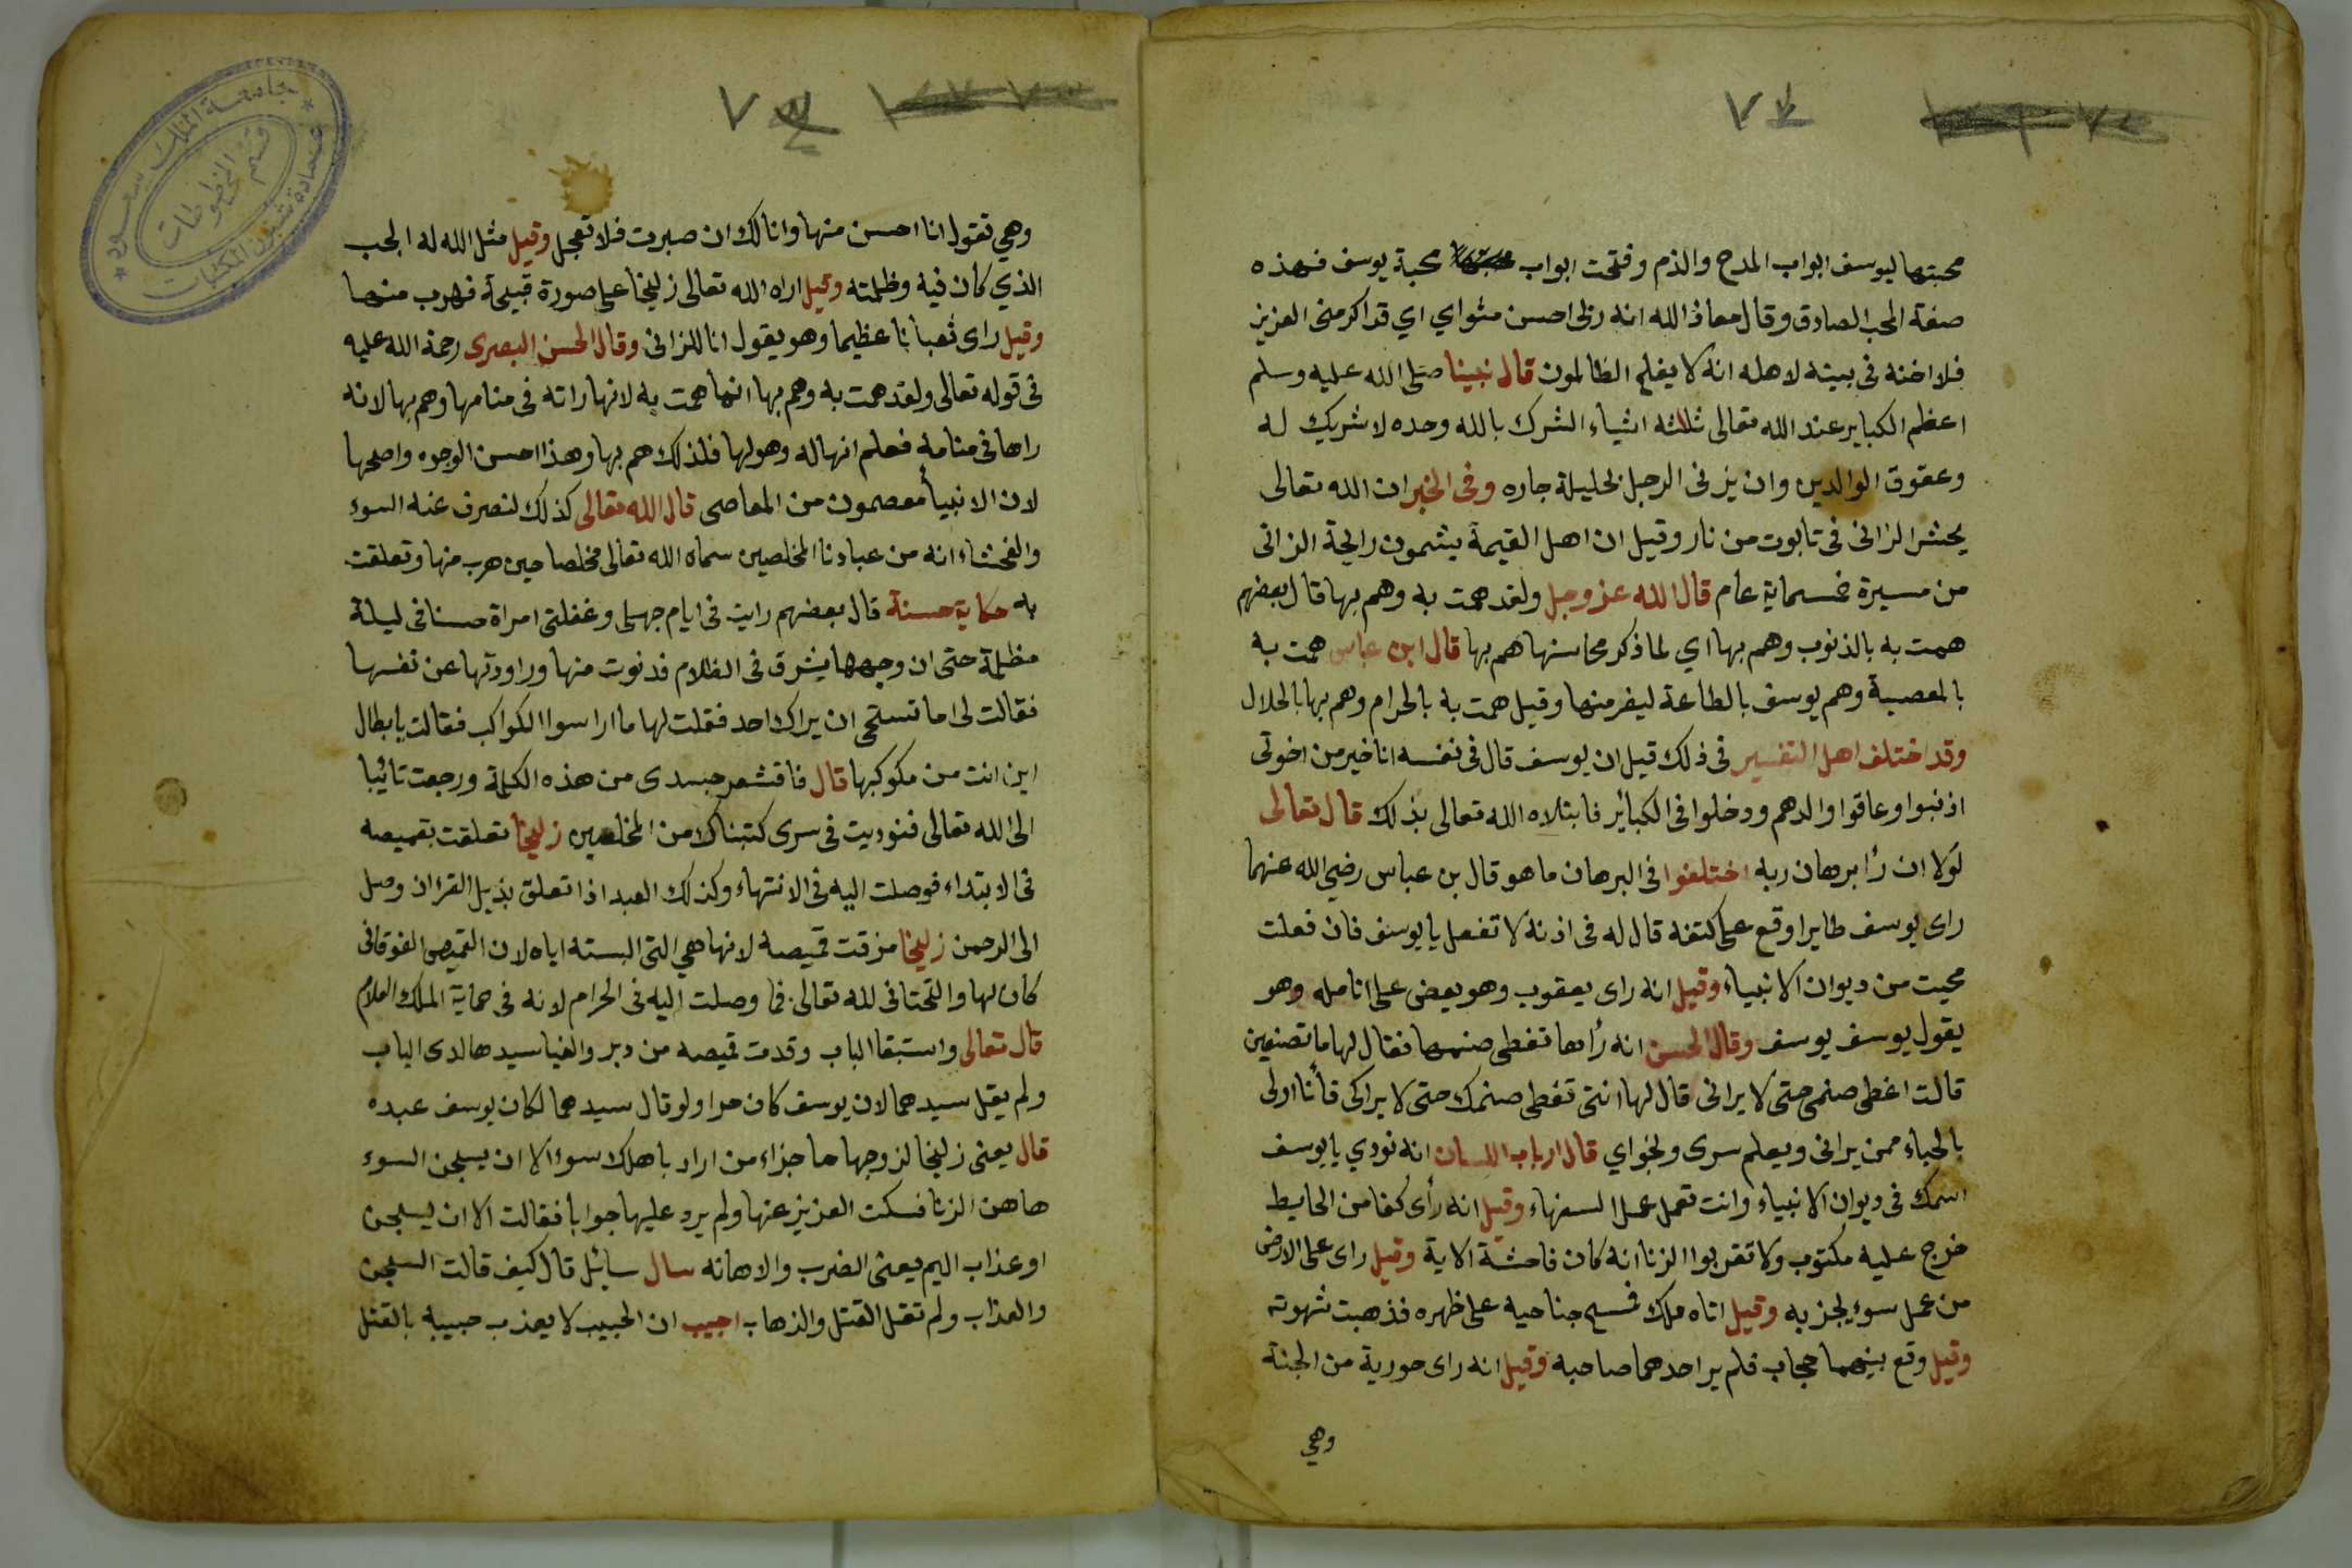 ٧٢
محبتها ليوسف ابواب المدح والذم وفتحت ابواب محبة يوسف فهذه
صفة المحب الصادق وقال معاذ الله انه ربى احسن مثواي اي قد اكرمنى العزيز
فلا اخنه فى بيته لاهله انه لا يفلح الظالمون قال نبينا صلى الله عليه وسلم
اعظم الكباير عند الله تعالى ثلاثه اشياء الشرك بالله وحده لا شريك له
وعقوق الوالدين وان يزنى الرجل بحليلة جاره وفى الخبر ان الله تعالى
يحشر الزانى فى تابوت من نار وقيل ان اهل القيمة يشمون رايحة الزانى
من مسيرة خمسماية عام قال الله عز وجل ولقد همت به وهم بها قال بعضهم
همت به بالذنوب وهم بها اي لما ذكر محاسنها هم بها قال ابن عباس همت به
بالمعصية وهم يوسف بالطاعة ليفر منها وقيل همت به بالحرام وهم بها بالحلال
وقد اختلف اهل التفسير فى ذلك قيل ان يوسف قال فى نفسه انا خير من اخوتى
اذنبوا وعاقوا والدهم ودخلوا فى الكبائر فابتلاه الله تعالى بذلك قال تعالى
لولا ان رأ برهان ربه اختلفوا فى البرهان ما هو قال بن عباس رضي الله عنهما
راى يوسف طايرا وقع على كتفه قال له فى اذنه لا تفعل يا يوسف فان فعلت
محيت من ديوان الانبياء وقيل انه راى يعقوب وهو يعض على انامله وهو
يقول يوسف يوسف وقال الحسن انه رأها تغطى صنمها فقال لها ما تصنعين
قالت اغطى صنمى حتى لا يرانى قال لها انتى تغطى صنمك حتى لا يراكى فأنا اولى
بالحياء ممن يرانى ويعلم سرى ونجواي قال ارباب اللسان انه نودي يا يوسف
اسمك فى ديوان الانبياء وانت تعمل عمل السفهاء وقيل انه رأى كفا من الحايط
خرج عليه مكتوب ولا تقربوا الزنا انه كان فاحشة الاية وقيل راى على الارض
من عمل سوء يجز به وقيل اتاه ملك فمسح جناحيه على ظهره فذهبت شهوته
وقيل وقع بينهما حجاب فلم ير احدهما صاحبه وقيل انه راى حورية من الجنة
وهي
وهي تقول انا احسن منها وانا لك ان صبرت فلا تعجل وقيل مثل الله له الجب
الذي كان فيه وظلمته وقيل اراه الله تعالى زليخا على صورة قبيحة فهرب منها
وقيل راى ثعبانا عظيما وهو يقول انا للزانى وقال الحسن البصرى رحمة الله عليه
فى قوله تعالى ولقد همت به وهم بها انها همت به لانها راته فى منامها وهم بها لانه
راها فى منامه فعلم انها له وهو لها فلذلك هم بها وهذا احسن الوجوه واصلحها
لان الانبيأ معصمون من المعاصى قال الله تعالى كذلك لنصرف عنه السوء
والفحشاء انه من عبادنا المخلصين سماه الله تعالى مخلصا حين هرب منها وتعلقت
به حكاية حسنة قال بعضهم رايت فى ايام جهلى وغفلتى امراة حسنا فى ليلة
مظلمة حتى ان وجهها يشرق فى الظلام فدنوت منها وراودتها عن نفسها
فقالت لى اما تستحى ان يراك احد فقلت لها ما ارا سوا الكواكب فقالت يا بطال
اين انت من مكوكبها قال فاقشعر جسدى من هذه الكلمة ورجعت تائبا
الى الله تعالى فنوديت فى سرى كتبناك من المخلصين زليخا تعلقت بقميصه
فى الابتداء فوصلت اليه فى الانتهاء وكذلك العبد اذا تعلق بذيل القران وصل
الى الرحمن زليخا مزقت قميصه لانها هي التى البسته اياه لان القميص الفوقانى
كان لها والتحتانى لله تعالى فما وصلت اليه فى الحرام لانه فى حماية الملك العلام
قال تعالى واستبقا الباب وقدت قميصه من دبر والفيا سيدها لدى الباب
ولم يقل سيدهما لان يوسف كان حرا ولو قال سيدهما لكان يوسف عبده
قال يعنى زليخا لزوجها ما جزاء من اراد باهلك سوءا الا ان يسجن السوء
هاهن الزنا فسكت العزيز عنها ولم يرد عليها جوابا فقالت الا ان يسجن
او عذاب اليم يعنى الضرب والاهانه سال سائل قال كيف قالت السجن
والعذاب ولم تقل القتل والذهاب اجيب ان الحبيب لا يعذب حبيبه بالقتل
جامعة الملك سعود
عمادة شؤون المكتبات
قسم المخطوطات